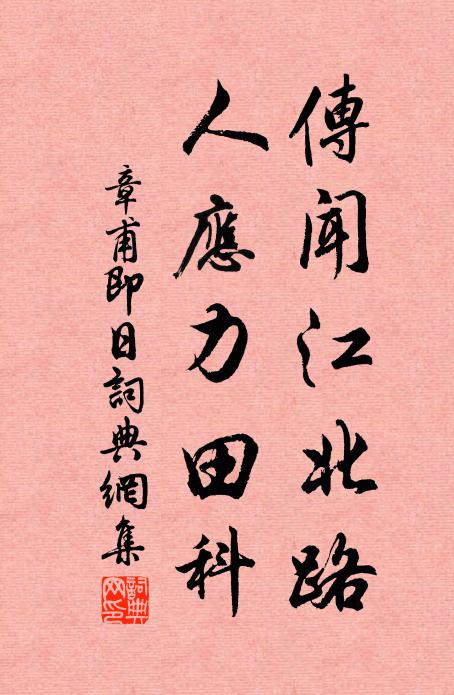 傳聞江北路
人應力田科
章甫即日詞典網集
詞典网印